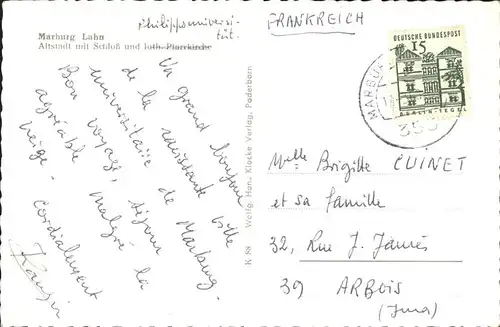 Philippsuniversi-
tät.
FRANKREICH
Marburg Lahn
Altstadt mit Schloß und luth. Pfarrkirche
DEUTSCHE BUNDESPOST
15
BERLIN-TEGEL
MARBURG
355
Un grand bonjour
de la ville
universitaire de Marburg.
Bon voyage, séjour
agréable malgré la
neige.
Cordialement
K 88 Wolfg. Han. Klocke Verlag, Paderborn
Melle Brigitte CUINET
et sa famille
32, Rue J. Jaurès
39 ARBOIS
(Jura)